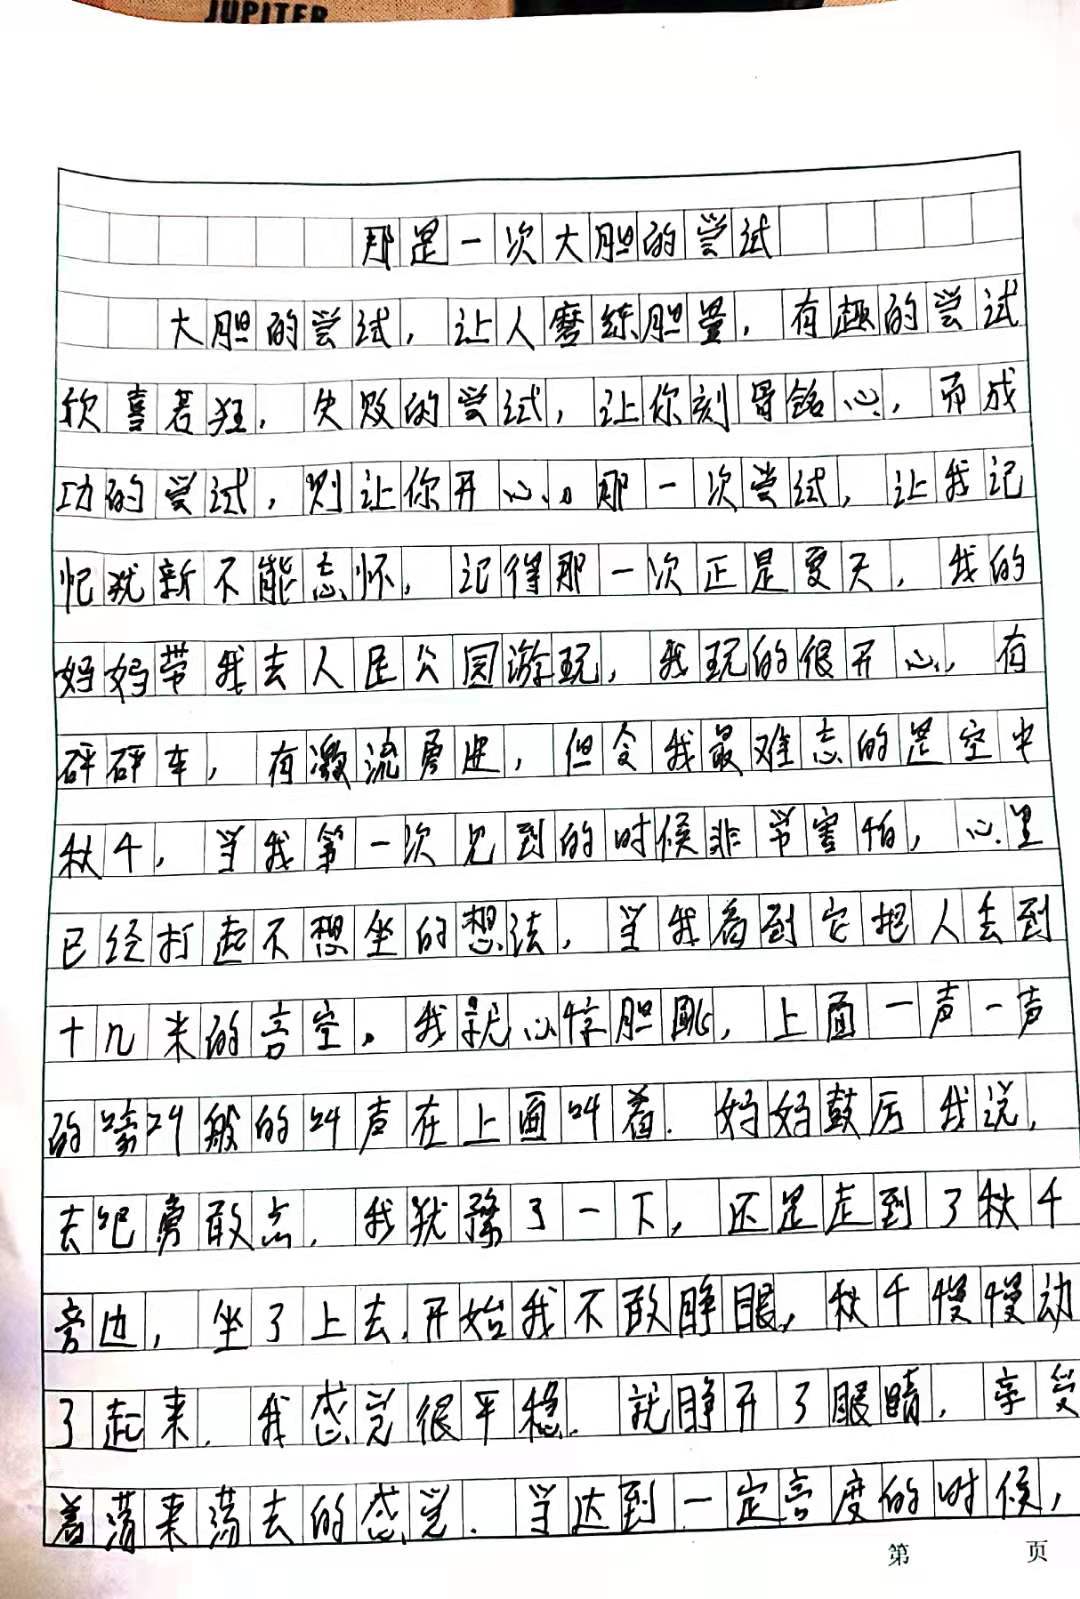 JUPITER
那是一次大胆的尝试
大胆的尝试，让人磨练胆量，有趣的尝试
欣喜若狂，失败的尝试，让你刻骨铭心，而成
功的尝试，则让你开心。那一次尝试，让我记
忆犹新不能忘怀，记得那一次正是夏天，我的
妈妈带我去人民公园游玩，我玩的很开心，有
砰砰车，有激流勇进，但令我最难忘的是空中
秋千，当我第一次见到的时候非常害怕，心里
已经打起不想坐的想法，当我看到它把人丢到
十几米的高空。我就心惊胆跳，上面一声一声
的嚎叫般的叫声在上面叫着.妈妈鼓厉我说，
去吧勇敢点，我犹豫了一下，还是走到了秋千
旁边，坐了上去.开始我不敢睁眼，秋千慢慢动
了起来.我感觉很平稳.就睁开了眼睛，享受
着荡来荡去的感觉.当达到一定高度的时候，
第 页